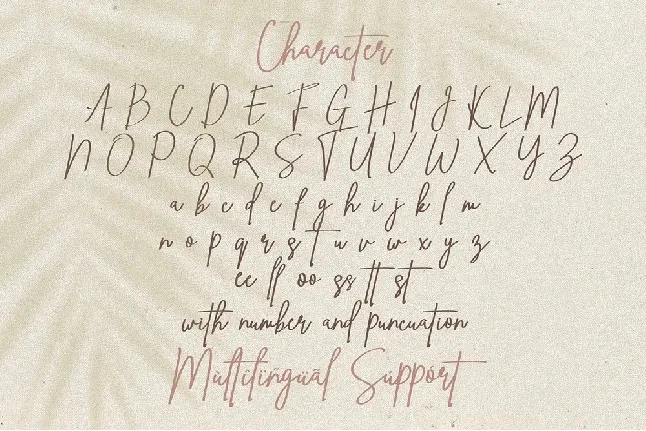 Character
A B C D E F G H I J K L M
N O P Q R S T U V W X Y Z
a b c d e f g h i j k l m
n o p q r s t u v w x y z
ee ll oo ss tt st
with number and puncuation
Mùltïlïñgüãl Süppórt